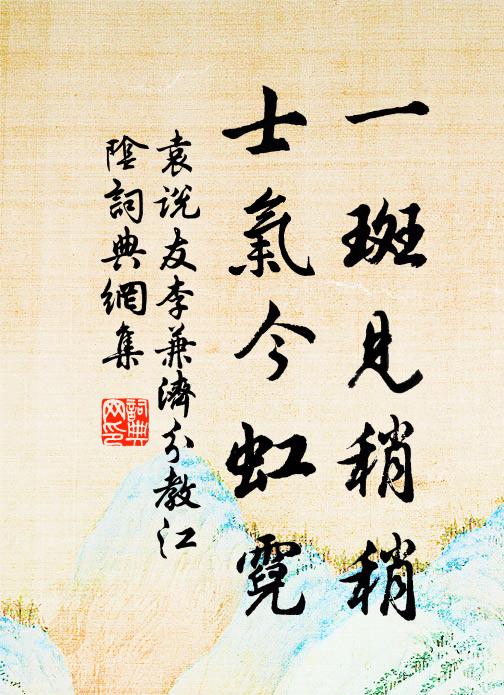 一斑見稍稍
士氣今虹霓
袁说友李兼濟分教江
陰詞典網集
詞典
网印